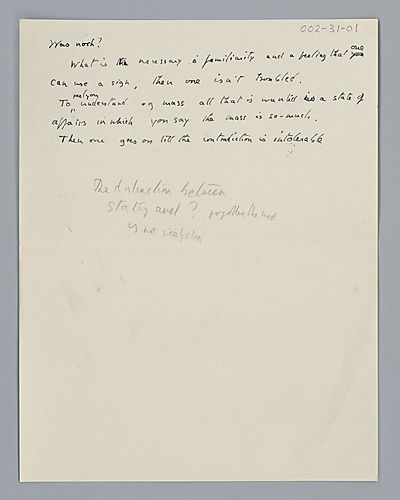 002-31-01
Was noch?
What is the necessary is familiarity and a feeling that one
can use a sign, then one isn't troubled.
To understand eg mass all that is wanted is a state of
affairs in which you say the mass is so-much.
Then one goes on till the contradiction is intolerable
The distinction between
stating and ?
is not really clear